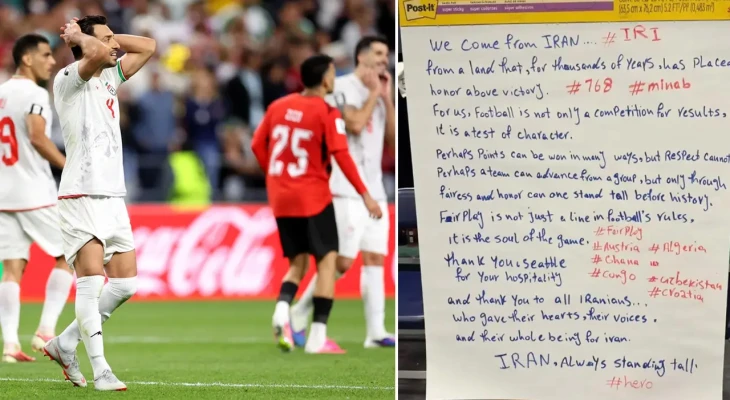 9
4
25
Post-it
super sticky
We come from IRAN.... #IRI
from a land that, for thousands of years, has Placed
honor above victory. #768 #minab
For us, Football is not only a competition for results,
it is a test of character.
Perhaps Points can be won in many ways, but Respect cannot
Perhaps a team can advance from a group, but only through
fairess and honor can one stand tall before history.
FairPlay is not just a line in football's rules,
it is the soul of the game.
#FairPlay
#Austria #Algeria
#Ghana
#Congo #uzbekistan
#croatia
Thank you, Seattle
for your hospitality
and thank you to all IRanians...
who gave their hearts, their voices,
and their whole being for iran.
IRAN, Always standing tall.
#hero